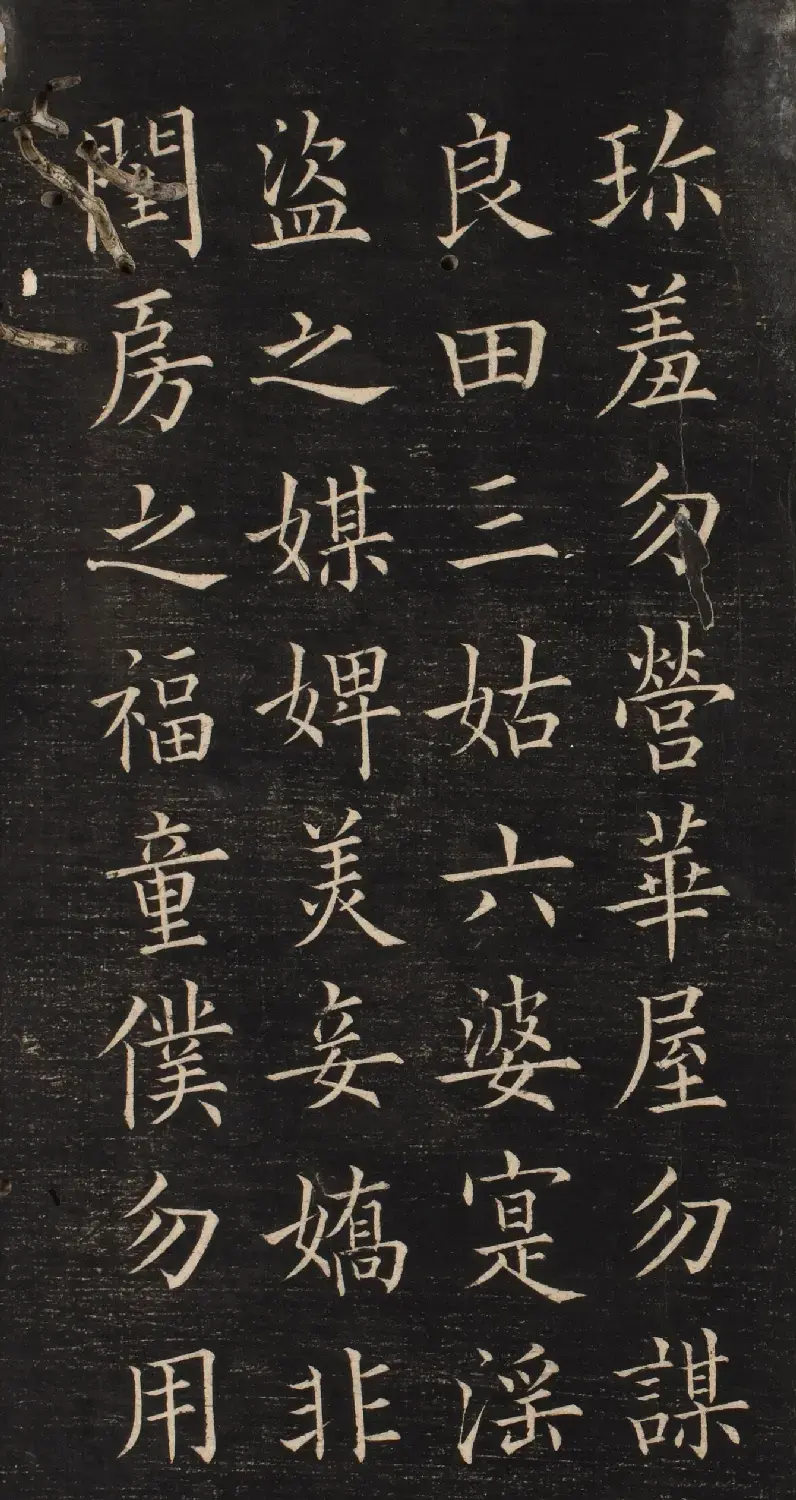 珎羞勿營華屋勿謀
良田三姑六婆寔淫
盜之媒婢美妾嬌非
閨房之福童僕勿用